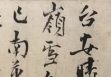 台安晴
嶺雪
已南